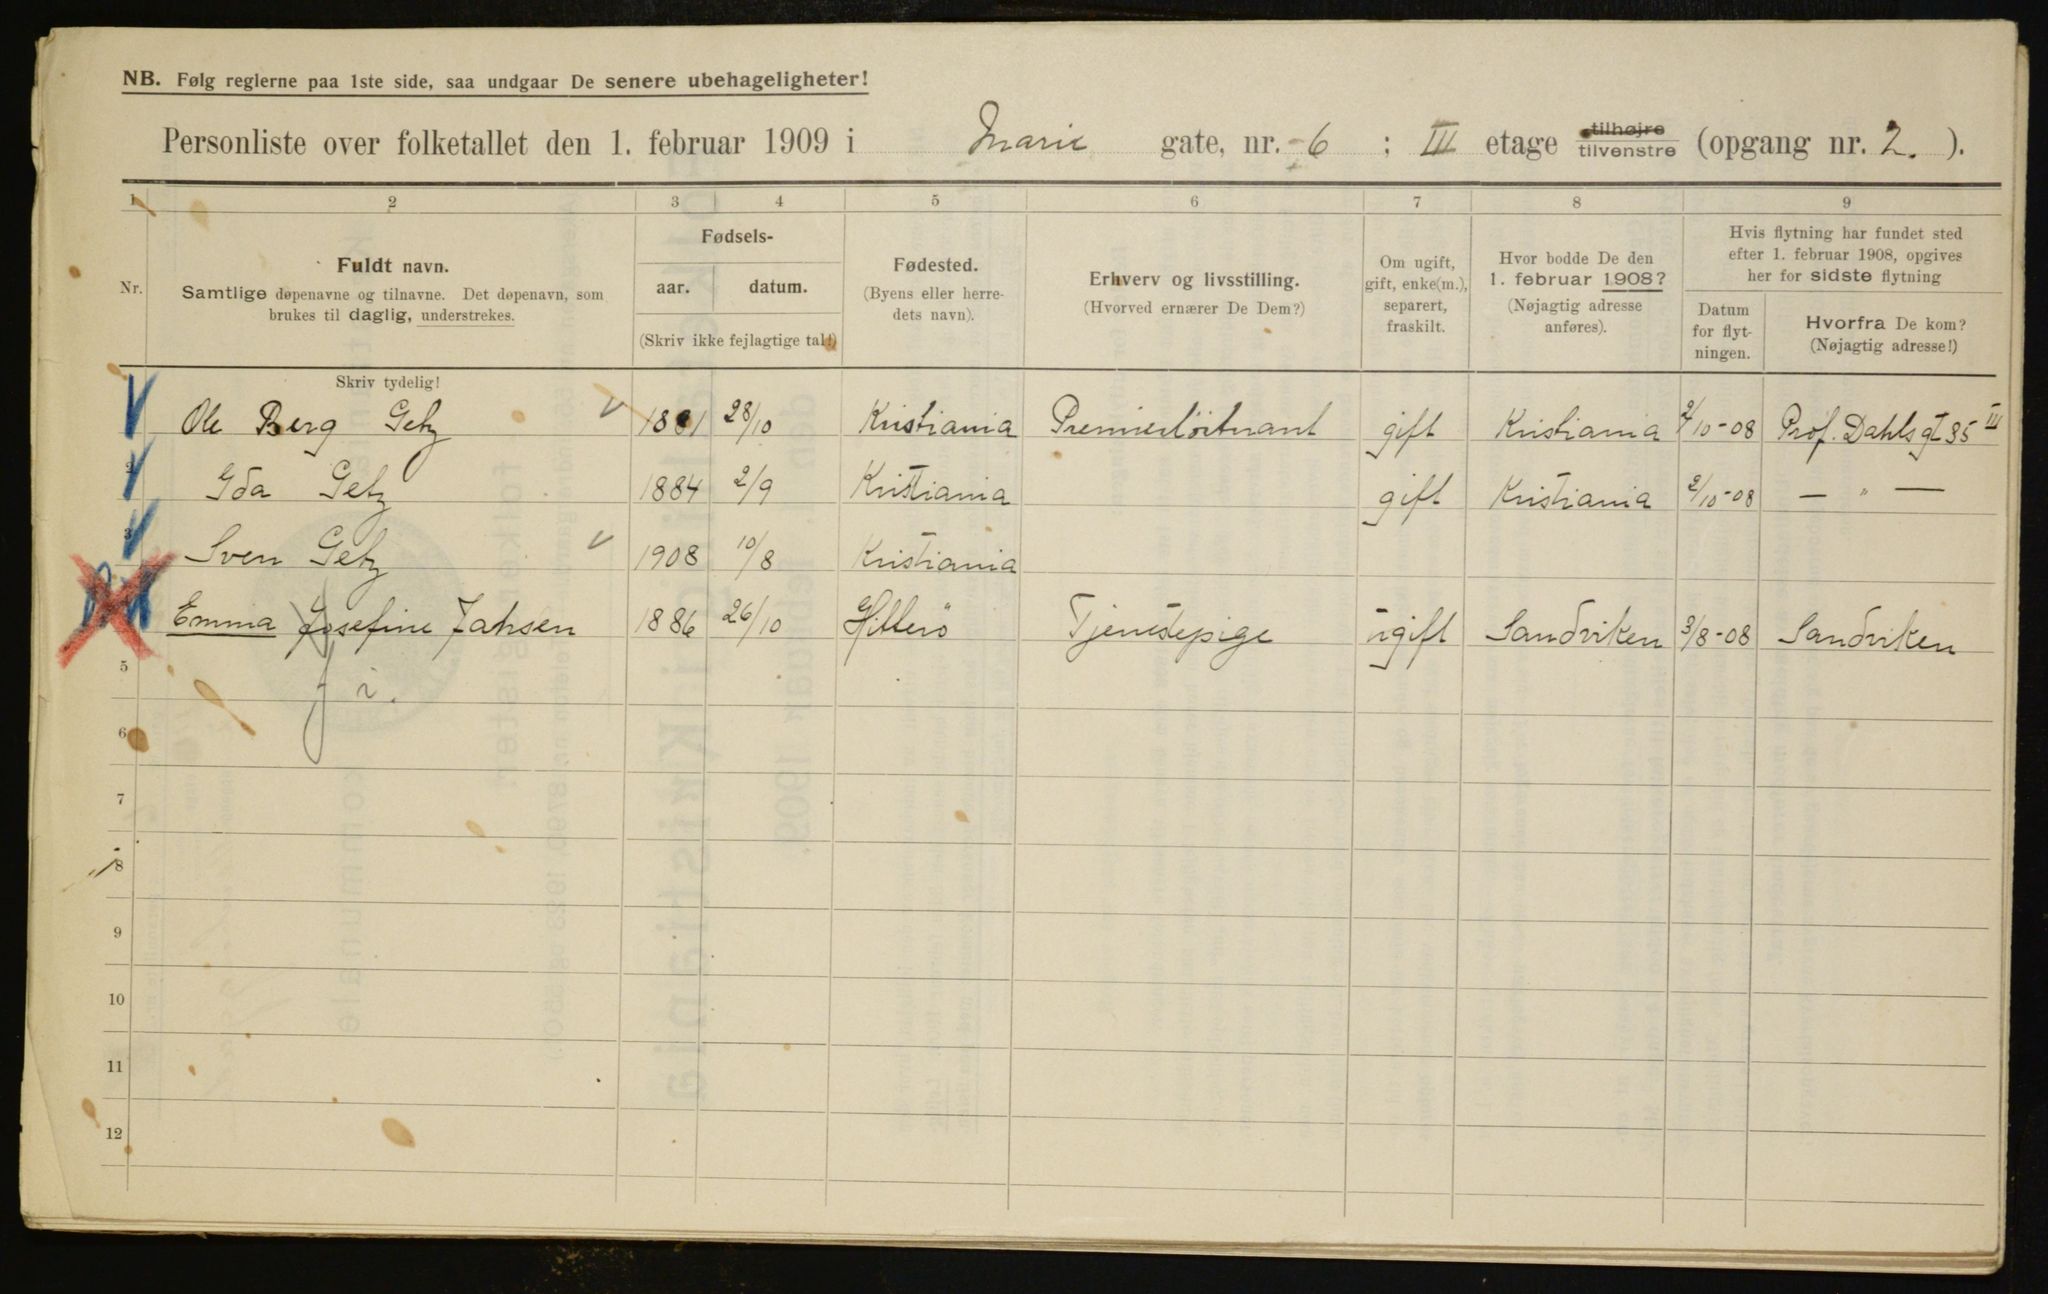 NB. Følg reglerne paa 1ste side, saa undgaar De senere ubehageligheter!
Personliste over folketallet den 1. februar 1909 i Marie gate, nr. 6 : III etage tilhøjre tilvenstre (opgang nr. 2. ).
1 2 3 4 5 6 7 8 9
Nr.
Fuldt navn.
Samtlige døpenavne og tilnavne. Det døpenavn, som
brukes til daglig, understrekes.
Fødsels-
aar. datum.
(Skriv ikke fejlagtige tal!)
Fødested.
(Byens eller herre-
dets navn).
Erhverv og livsstilling.
(Hvorved ernærer De Dem?)
Om ugift,
gift, enke(m.),
separert,
fraskilt.
Hvor bodde De den
1. februar 1908?
(Nøjagtig adresse
anføres).
Hvis flytning har fundet sted
efter 1. februar 1908, opgives
her for sidste flytning
Datum
for flyt-
ningen.
Hvorfra De kom?
(Nøjagtig adresse!)
Skriv tydelig!
Ole Berg Getz 1881 28/10 Kristiania Premierløitnant gift Kristiania 2/10-08 Prof. Dahls gt 35 III
2 Ida Getz 1884 2/9 Kristiania gift Kristiania 2/10-08 — " —
3 Sven Getz 1908 10/8 Kristiania
Emma Josefine Jahsen 1886 26/10 Hitterö Tjenestepige ugift Sandviken 3/8-08 Sandviken
5
6
7
8
9
10
11
12